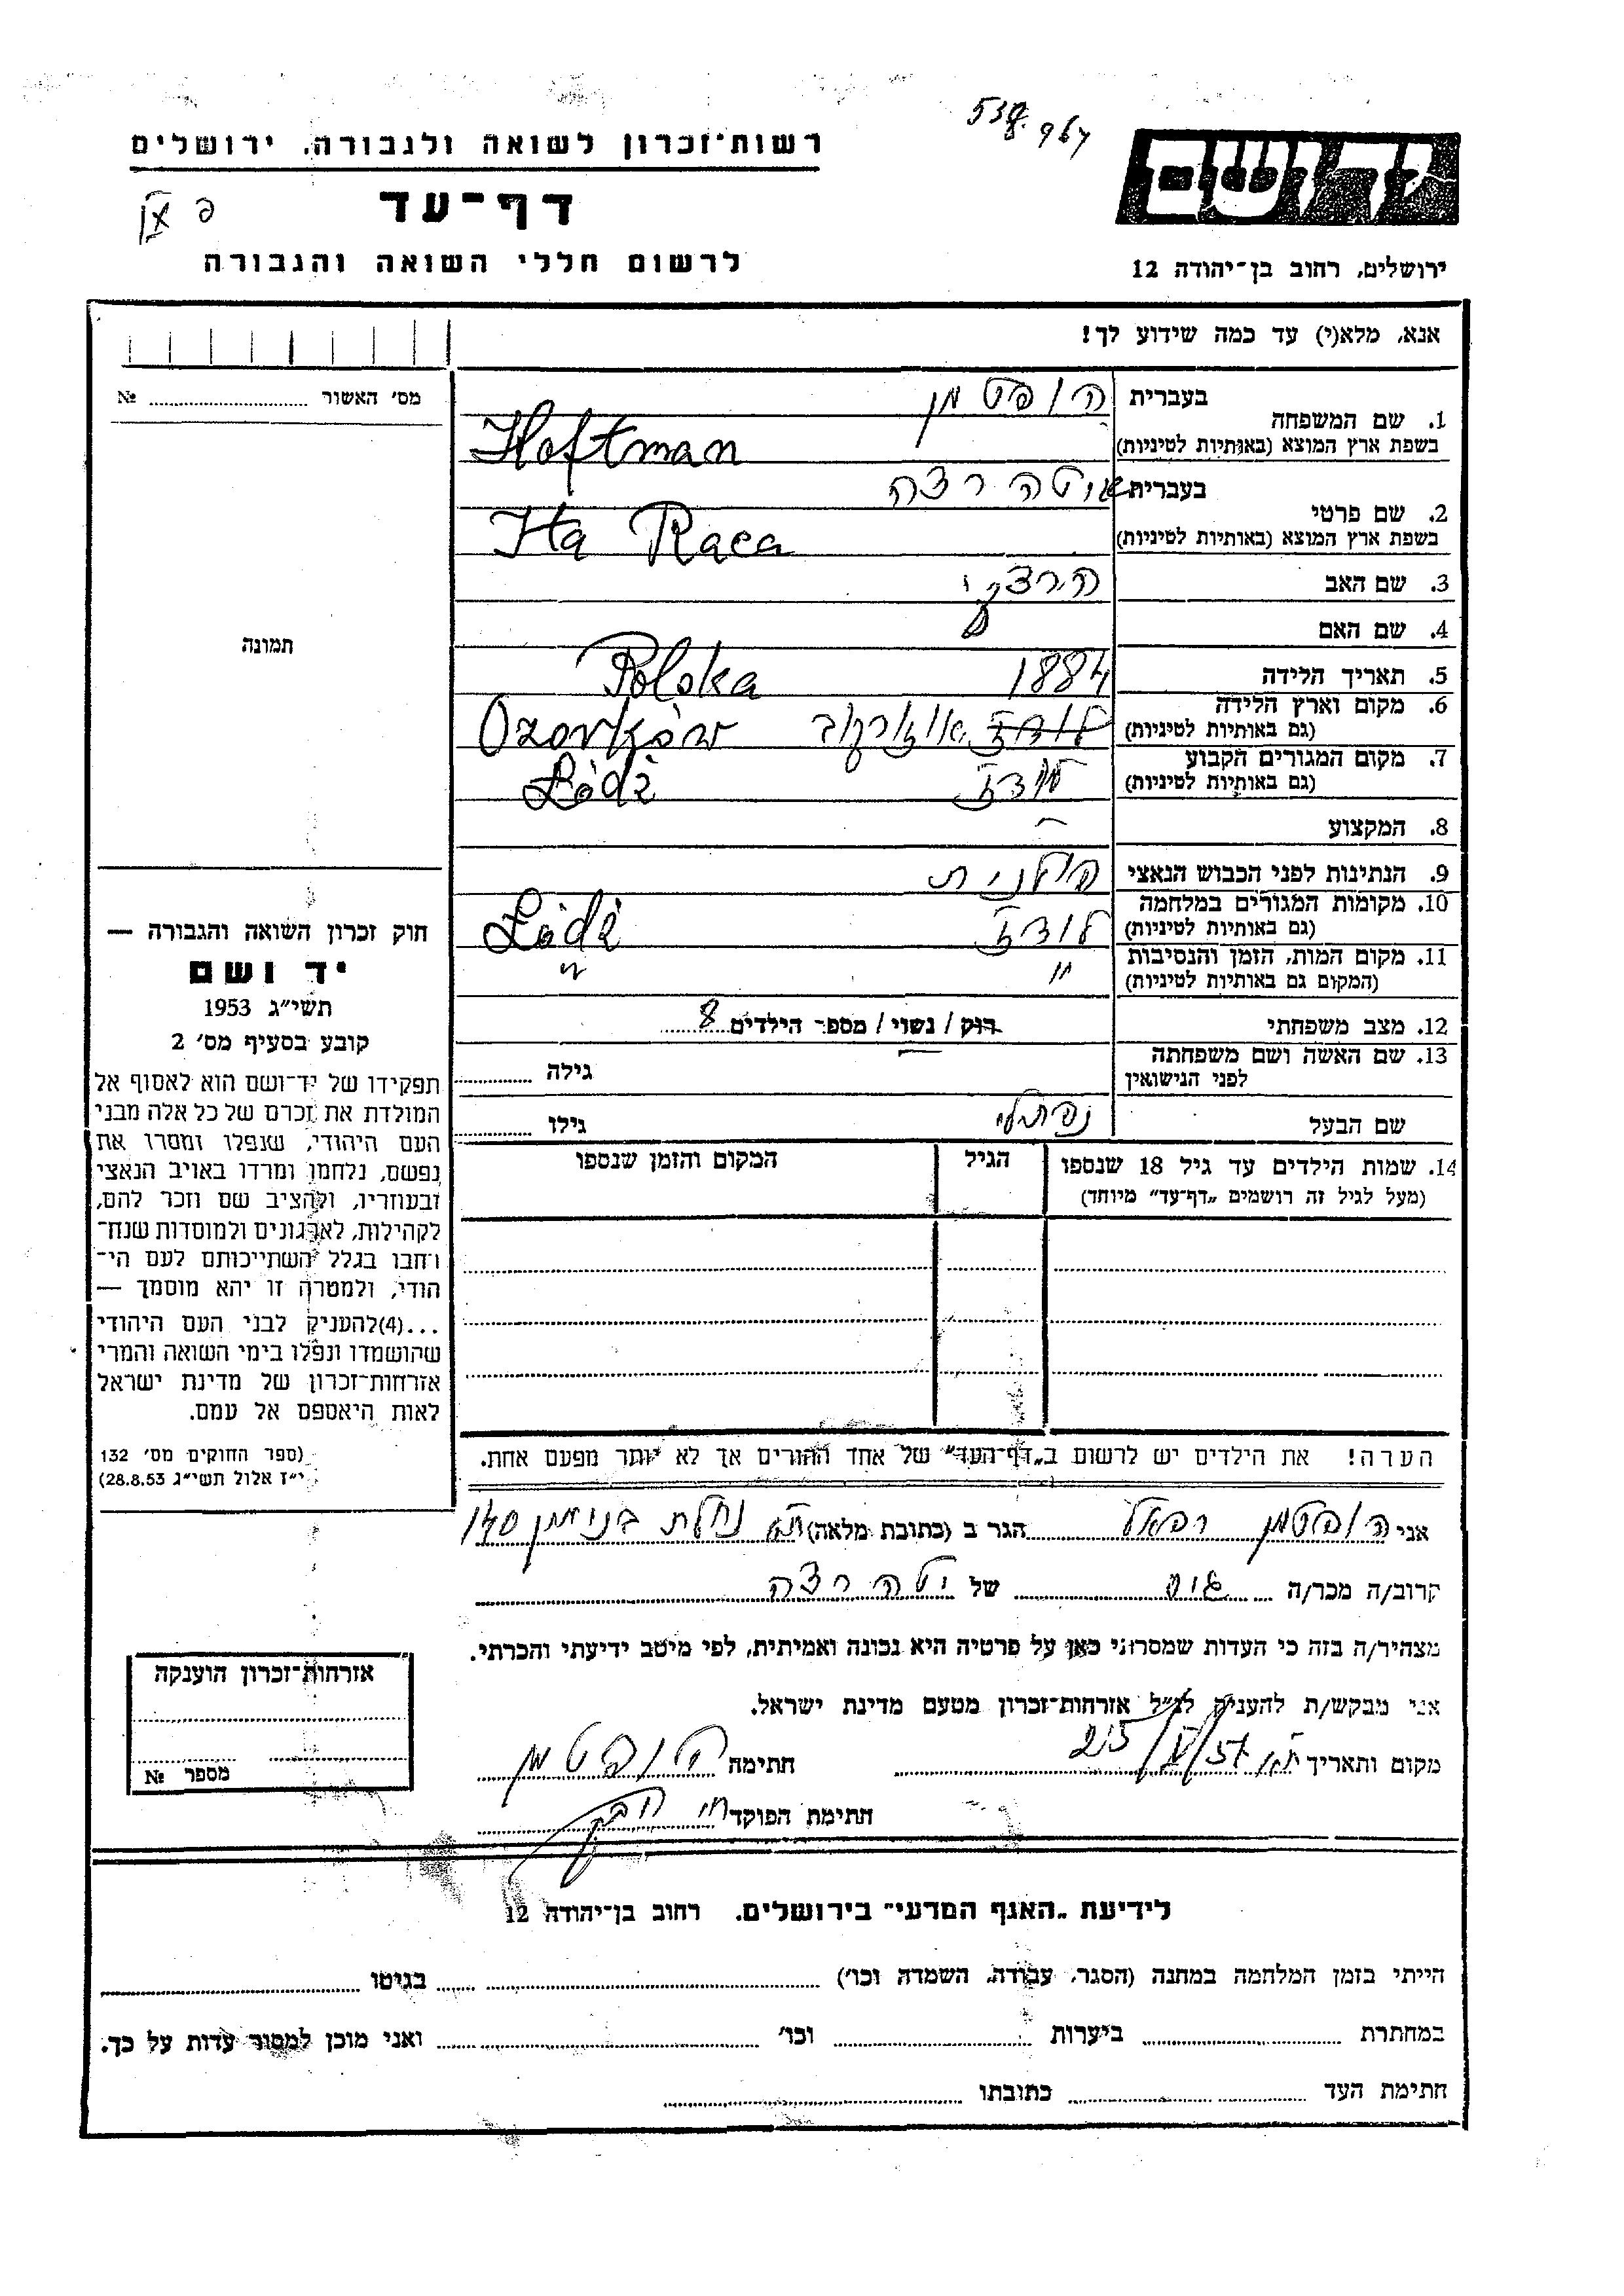 רשות־זכרון לשואה ולגבורה, ירושלים
דף־עד
לרשום חללי השואה והגבורה
יד ושם
ירושלים, רחוב בן־יהודה 12
אנא, מלא(י) עד כמה שידוע לך!
מס׳ האשור № 
1. שם המשפחה
בעברית הופטמן
בשפת ארץ המוצא (באותיות לטיניות) Hoftman
2. שם פרטי
בעברית איטה רצה
בשפת ארץ המוצא (באותיות לטיניות) Ita Raca
3. שם האב
4. שם האם
5. תאריך הלידה 1884 Polska
6. מקום וארץ הלידה
(גם באותיות לטיניות) לודז אוזורקוב Ozorków
7. מקום המגורים הקבוע
(גם באותיות לטיניות) לודז Łódź
8. המקצוע –
9. הנתינות לפני הכבוש הנאצי פולנית
10. מקומות המגורים במלחמה
(גם באותיות לטיניות) לודז Łódź
11. מקום המות, הזמן והנסיבות
(המקום גם באותיות לטיניות) " "
12. מצב משפחתי רוק / נשוי / מספר הילדים 8
13. שם האשה ושם משפחתה
לפני הנישואין גילה
שם הבעל נפתלי גילו
14. שמות הילדים עד גיל 18 שנספו
(מעל לגיל זה רושמים „דף־עד״ מיוחד)
הגיל
המקום והזמן שנספו
הערה! את הילדים יש לרשום ב„דף־העד״ של אחד ההורים אך לא יותר מפעם אחת.
תמונה
חוק זכרון השואה והגבורה —
יד ושם
תשי״ג 1953
קובע בסעיף מס׳ 2
תפקידו של יד־ושם הוא לאסוף אל
המולדת את זכרם של כל אלה מבני
העם היהודי, שנפלו ומסרו את
נפשם, נלחמו ומרדו באויב הנאצי
ובעוזריו, ולהציב שם וזכר להם,
לקהילות, לארגונים ולמוסדות שנח־
רחבו בגלל השתייכותם לעם הי־
הודי, ולמטרה זו יהא מוסמך —
...(4)להעניק לבני העם היהודי
שהושמדו ונפלו בימי השואה והמרי
אזרחות־זכרון של מדינת ישראל
לאות היאספם אל עמם.
(ספר החוקים מס׳ 132
י״ז אלול תשי״ג 28.8.53)
אני הופטמן רפאל הגר ב (כתובת מלאה) ת״א נחלת בנימין 140
קרוב/ה מכר/ה גיס של יטה רצה
מצהיר/ה בזה כי העדות שמסרתי כאן על פרטיה היא נכונה ואמיתית, לפי מיטב ידיעתי והכרתי.
אני מבקש/ת להעניק לנ״ל אזרחות־זכרון מטעם מדינת ישראל.
מקום ותאריך חתימה הופטמן
חתימת הפוקד
אזרחות־זכרון הוענקה
מספר №
לידיעת „האגף המדעי״ בירושלים. רחוב בן־יהודה 12
הייתי בזמן המלחמה במחנה (הסגר, עבודה, השמדה וכו׳) בגיטו
במחתרת ביערות וכו׳ ואני מוכן למסור עדות על כך.
חתימת העד כתובתו